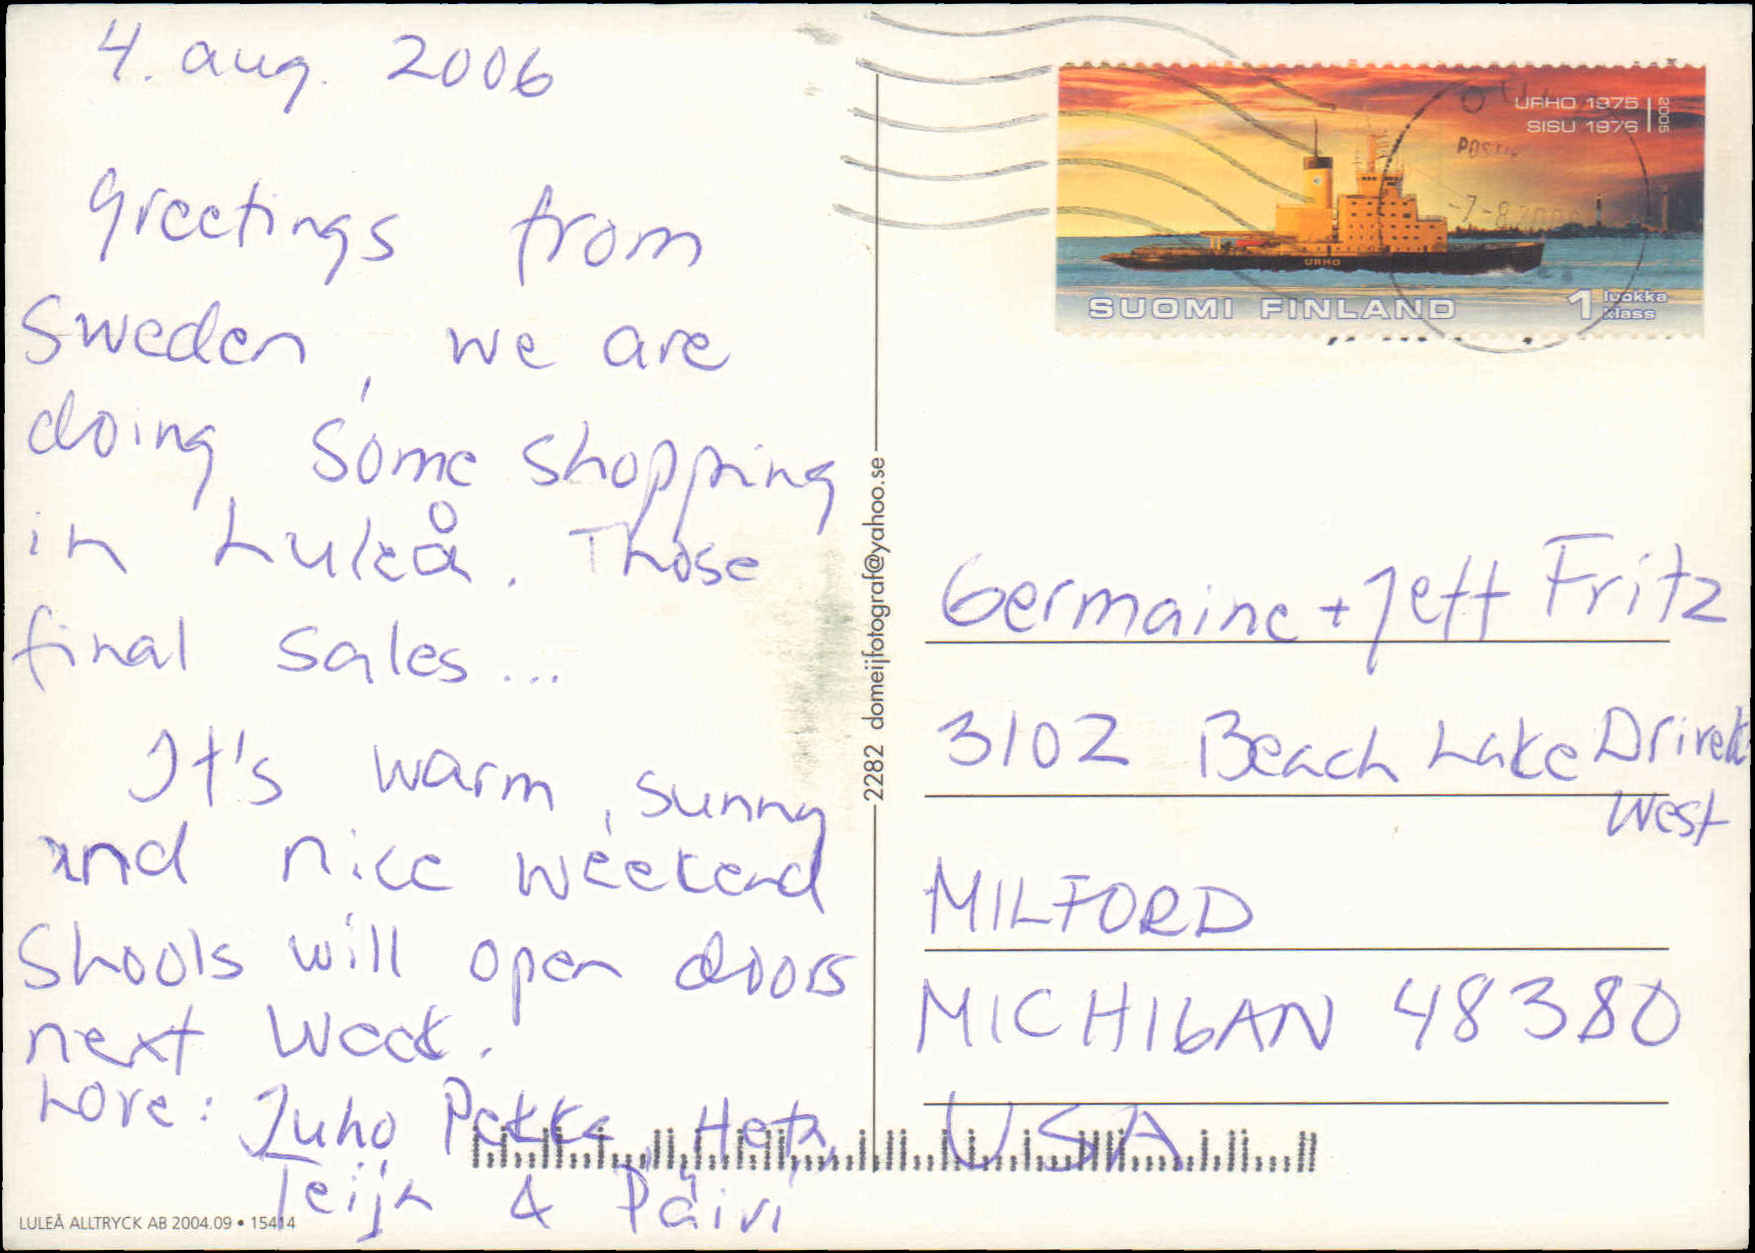 4. aug. 2006
Greetings from
Sweden, we are
doing some shopping
in Luleå. Those
final sales...
It's warm, sunny
and nice weekend
Shools will open doors
next week.
Love: Juho Pekka, Heta,
Teija & Päivi
LULEÅ ALLTRYCK AB 2004.09 • 15414
2282 domeijfotograf@yahoo.se
URHO 1975
SISU 1976
2005
POSTI
-7-8.2006
URHO
SUOMI FINLAND
1 luokka
klass
Germaine + Jeff Fritz
3102 Beach Lake Drive
West
MILFORD
MICHIGAN 48380
USA